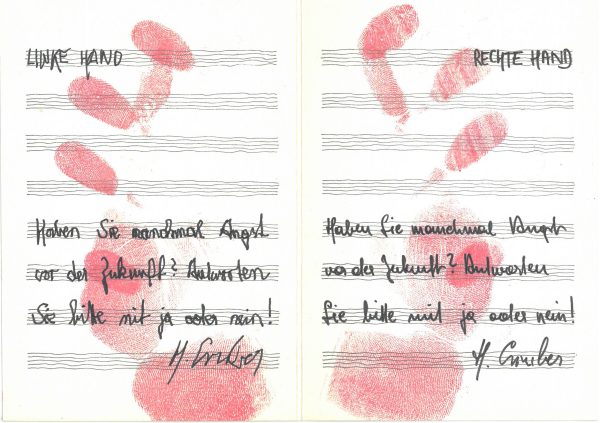 LINKE HAND
Haben Sie manchmal Angst
vor der Zukunft? Antworten
Sie bitte mit ja oder nein!
RECHTE HAND
Haben Sie manchmal Angst
vor der Zukunft? Antworten
Sie bitte mit ja oder nein!